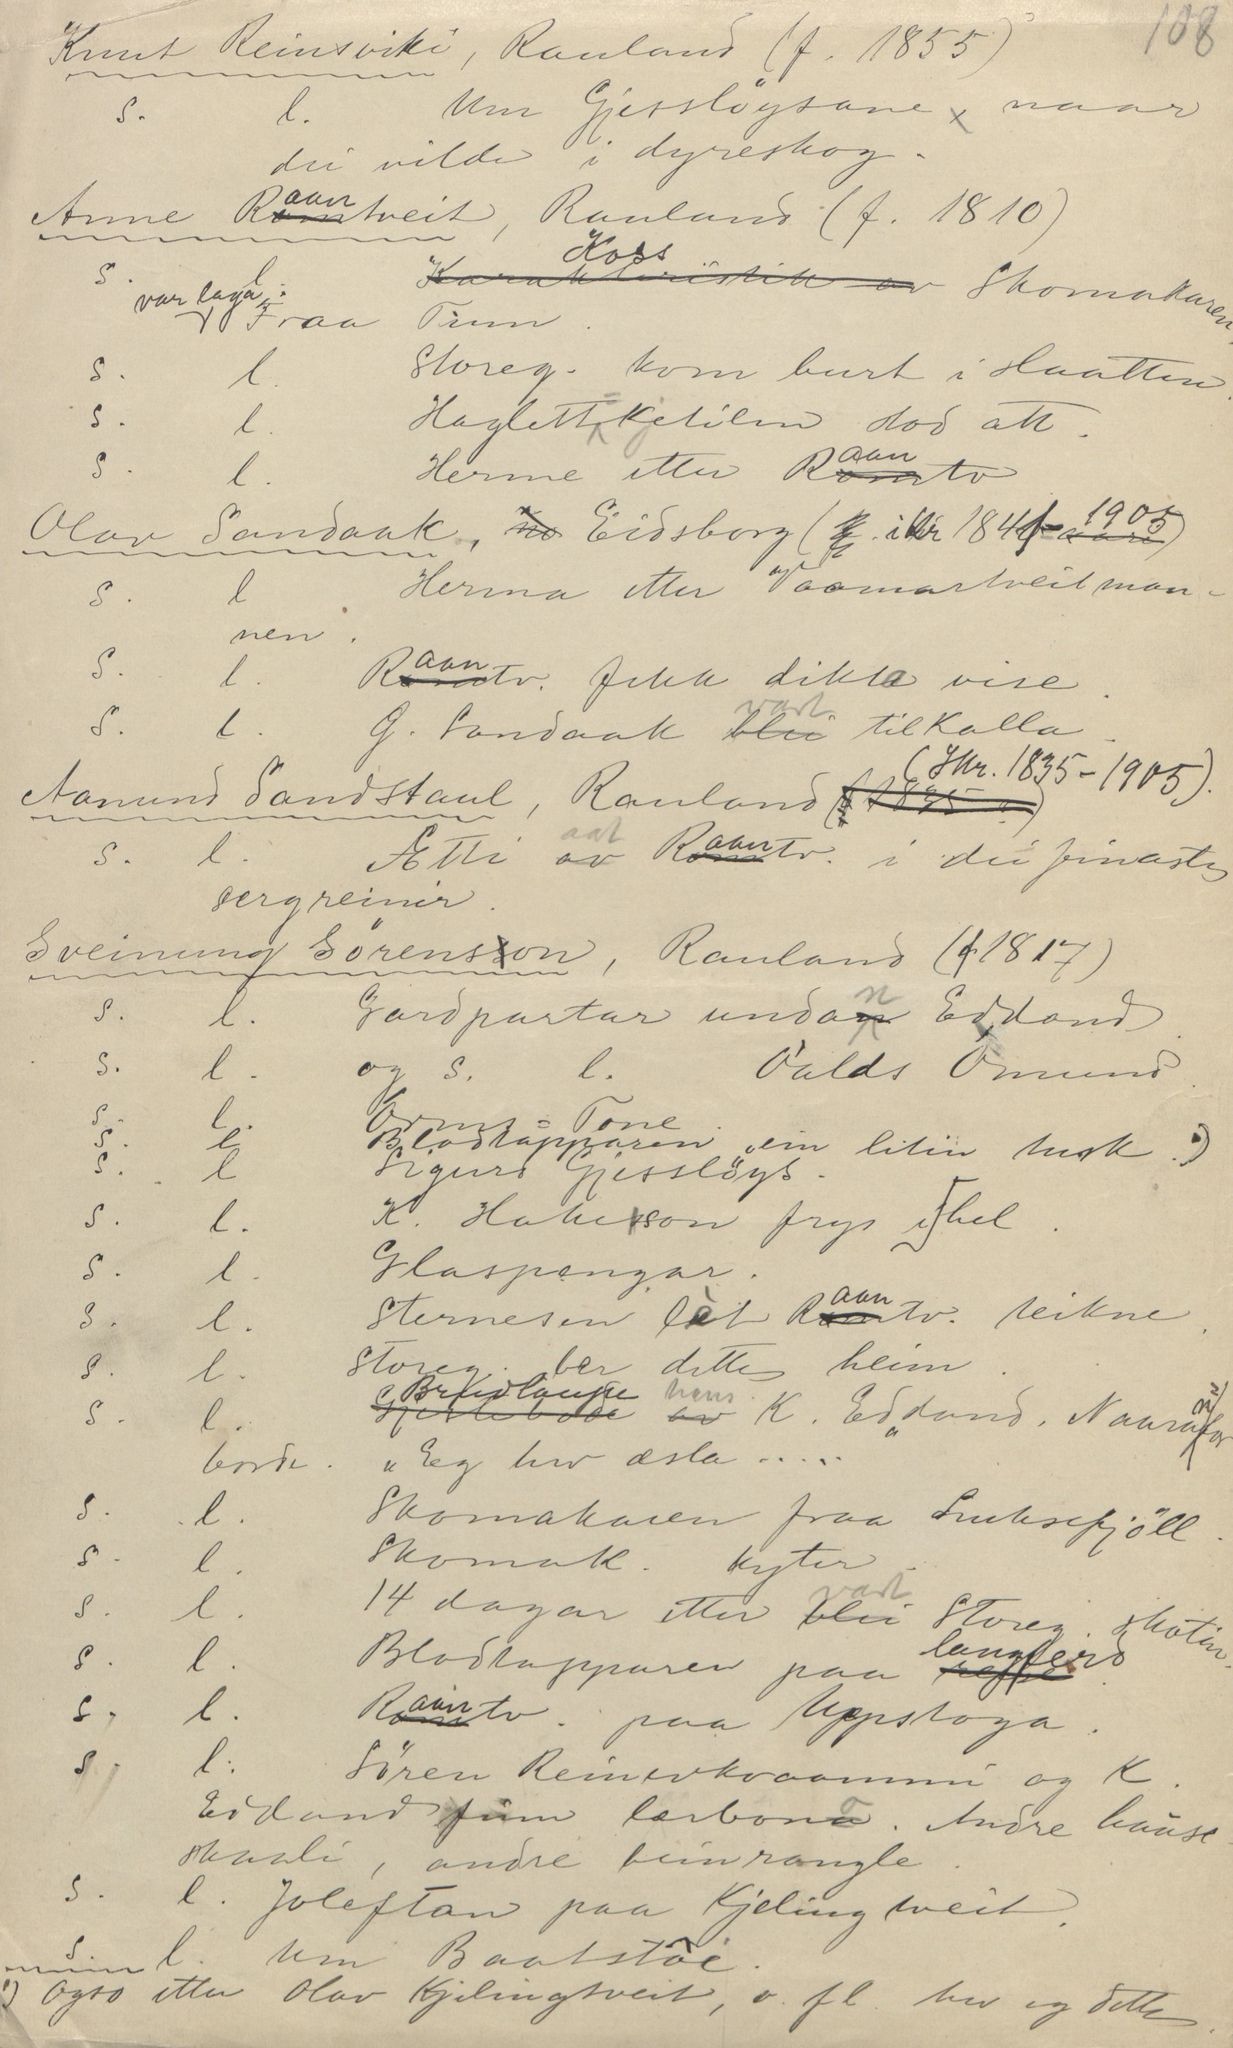 108
Knut Reinsviki, Rauland (f. 1855)
s. l. Um Gjessløysane x naar
dei vilde i dyreskog.
Anne Raantveit, Rauland (f. 1810)
s. l. Hoss Skomakaren
var laga. Fraa Tinn.
s. l. Storeg. kom burt i Haatten.
s. l. Haglett-Ketilen stod att.
s. l. Herme etter Raantv
Olav Sandaak, Eidsborg (ikr 1841-1905)
s. l Herma etter Vaamartveitman-
nen.
s. l. Raantv. fekk dikta vise.
s. l. G. Sandaak vart tilkalla.
Aamund Sandstaul, Rauland (Ikr. 1835-1905).
s. l. Ætti aat Raantv. i dei finaste
sergreinir.
Sveinung Sörensson, Rauland (f 1817)
s. l. Gardpartar undan Eddand.
s. l. og s. l. Óalds Ómund.
s. l. Orms-Tone.
s. l Blodtapparen ein liten husk. ¹)
s. l Sigurd Gjessløys.
s. l. K. Hakesson frys i hel.
s. l. Glaspengar.
s. l. Sternesen lèt Raantv. teikne.
s. l. Storeg. ber dette heim.
s. l. Brudlaupe hans K. Eddand. Naar
borde. "Eg hev æsla .....
s. l. Skomakaren fraa Luksefjöll.
s. l. Skomak. kyter.
s. l. 14 dagar etter vart Storeg. skoten.
s. l. Blodtapparen paa langferd.
s. l. Raantv. paa Uppstoga.
s. l. Sören Reinerkvaammi og K.
Eddand finn lærbona. Andre hause-
skaali, andre beinrangle.
s. l. Joleftan paa Kjelingtveit.
s. l. Um Baatstöe.
¹) Ogso etter Olav Kjelingtveit, o. fl. hev eg dette.